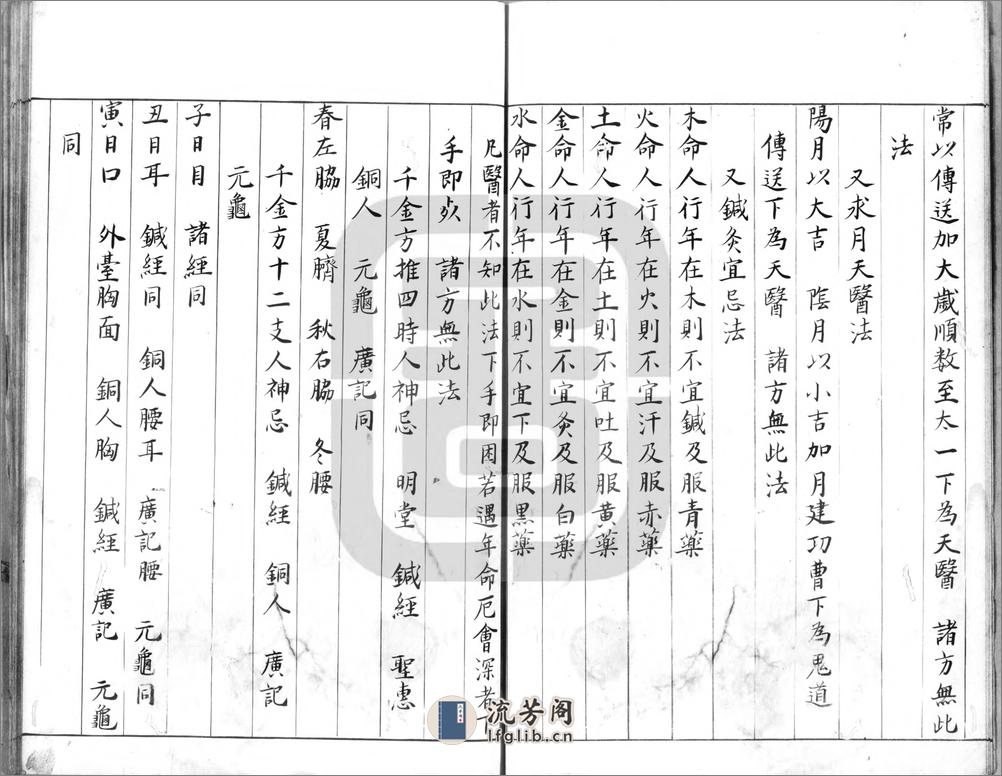 常以傳送加大歲順数至太一下為天醫　諸方無此
法
又求月天醫法
陽月以大吉　陰月以小吉加月建功曹下為鬼道
傳送下為天醫　諸方無此法
又鍼灸宜忌法
木命人行年在木則不宜鍼及服青藥
火命人行年在火則不宜汗及服赤藥
土命人行年在土則不宜吐及服黄藥
金命人行年在金則不宜灸及服白藥
水命人行年在水則不宜下及服黑藥
凡醫者不知此法下手即困若遇年命厄會深者下
手即死　諸方無此法
千金方推四時人神忌　明堂　鍼經　聖惠
銅人　元龜　廣記同
春左脇　夏臍　秋右脇　冬腰
千金方十二支人神忌　鍼經　銅人　廣記
元龜
子日目　諸經同
丑日耳　鍼經同　銅人腰耳　廣記腰　元龜同
寅日口　外臺胸面　銅人胸　鍼經　廣記　元龜
同
流芳阁
lfglib.cn